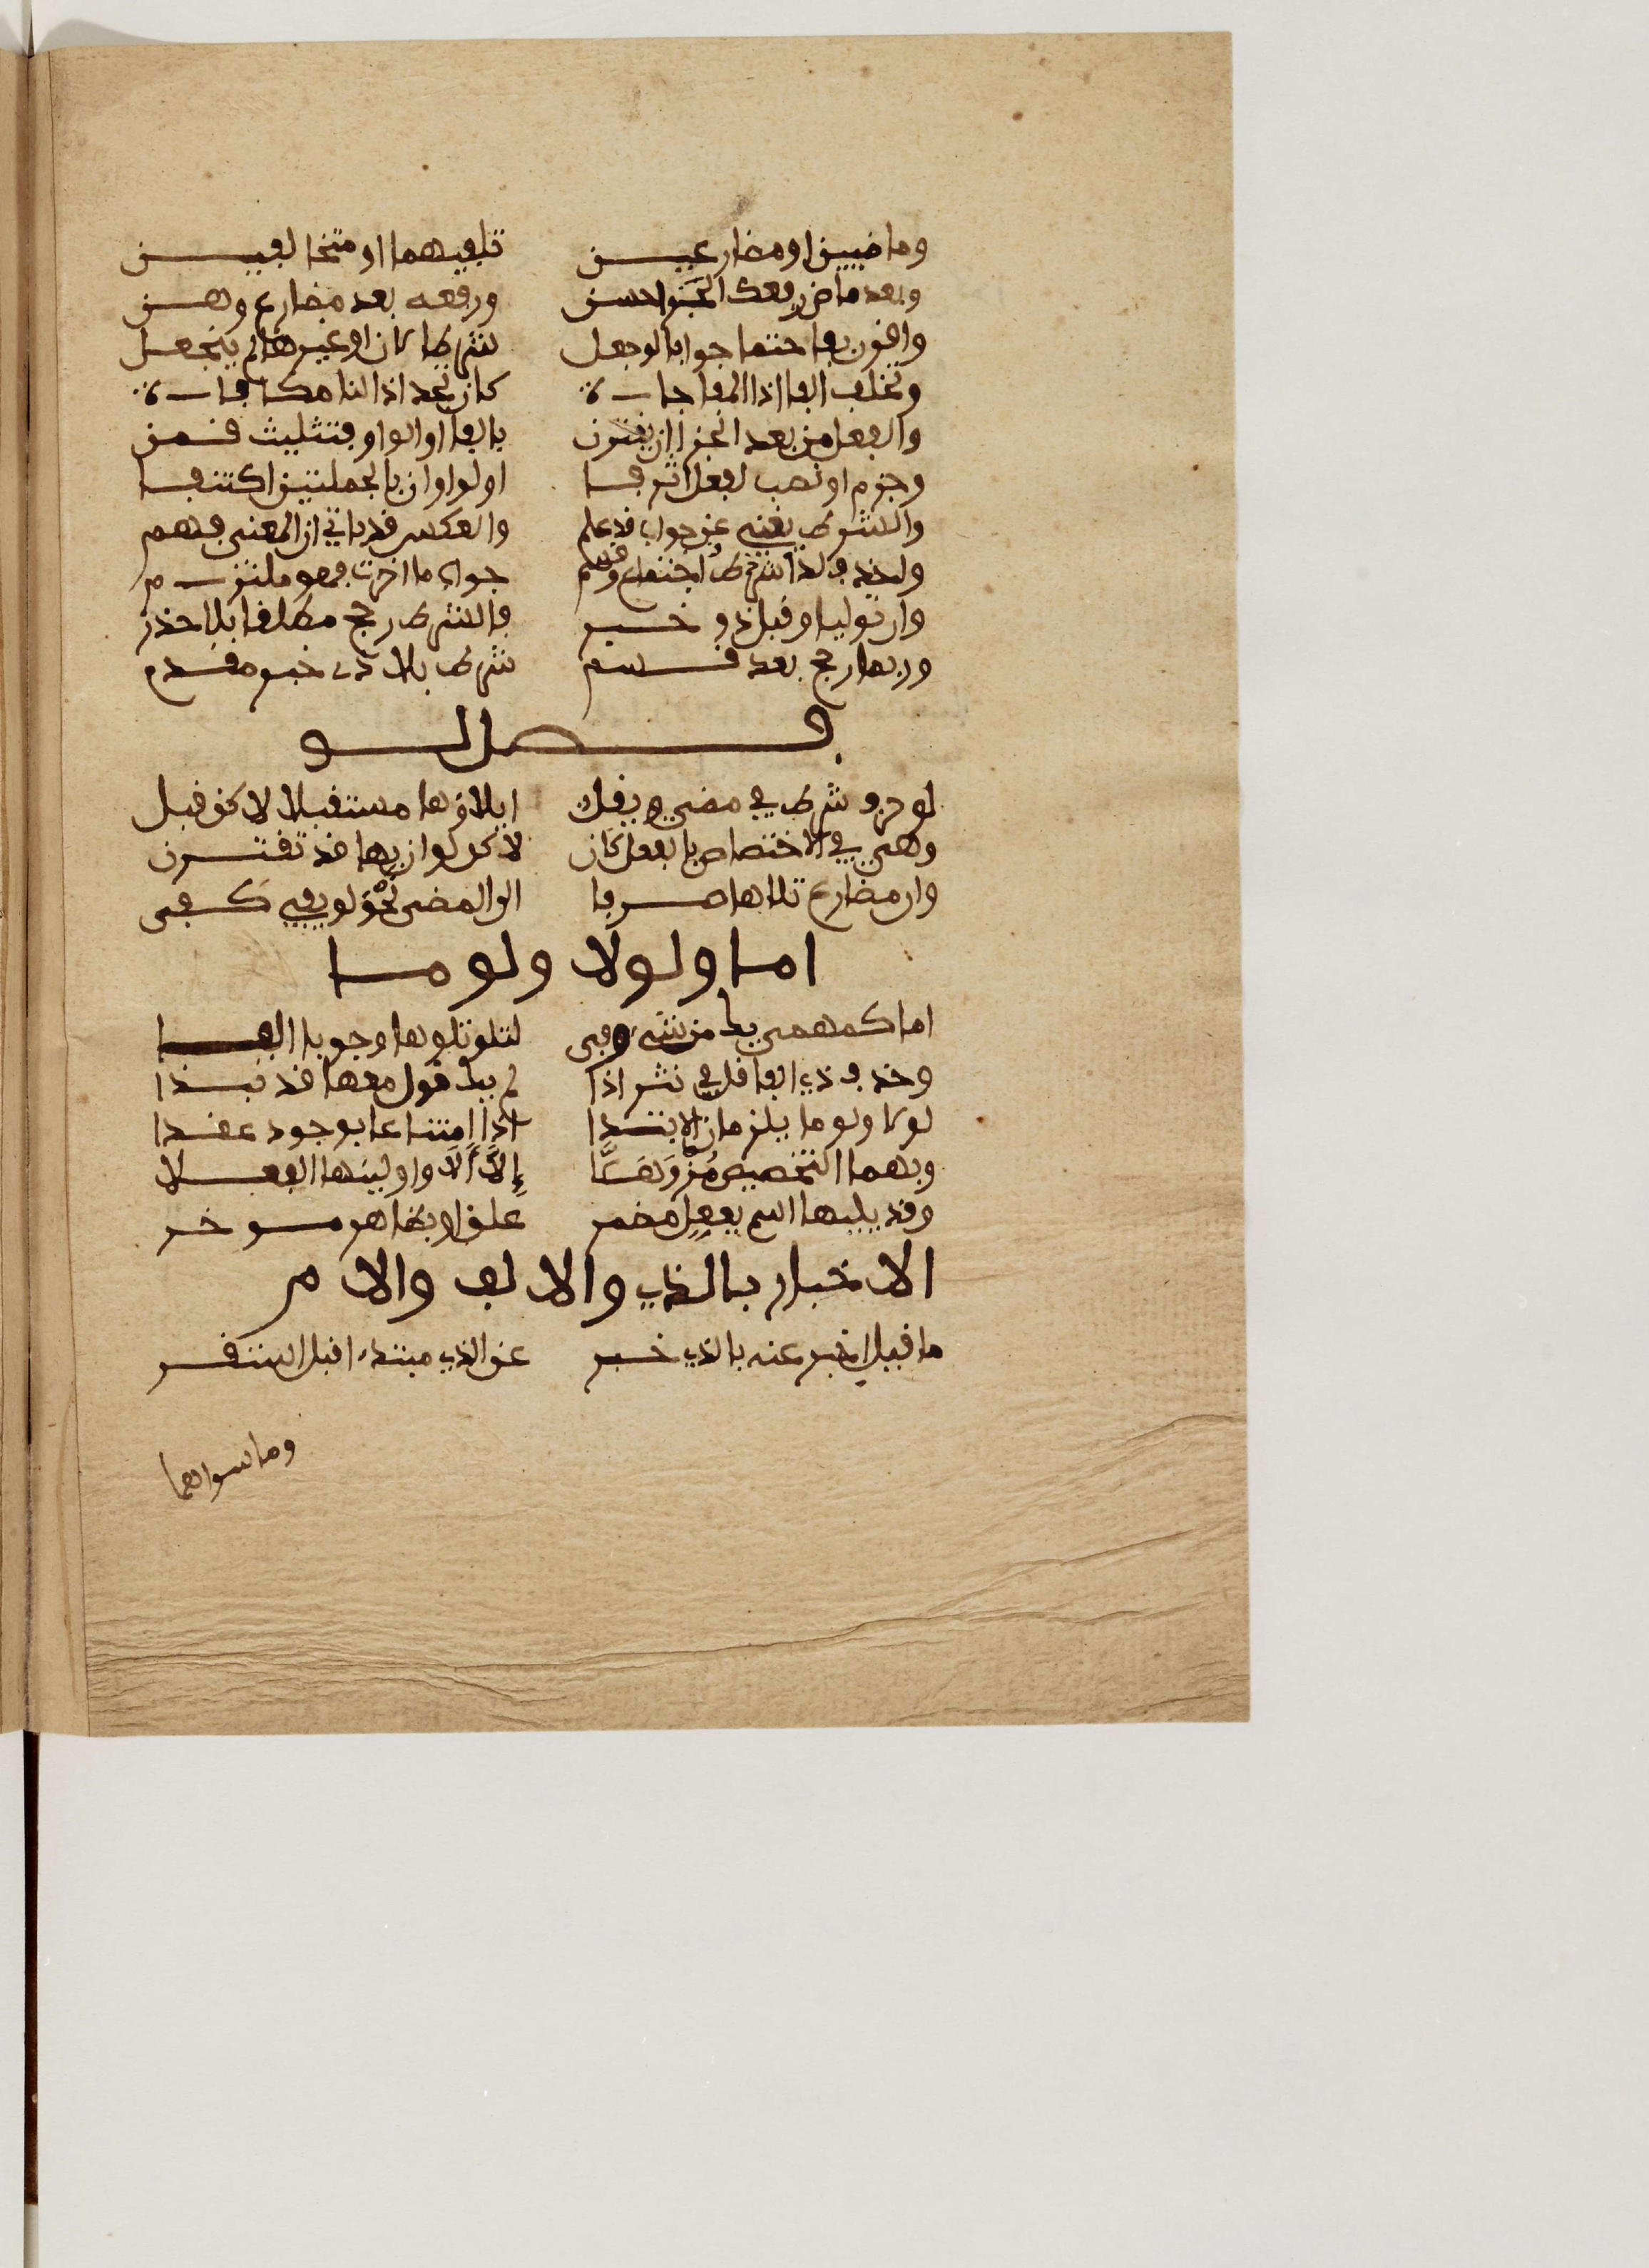 وماضيين او مضارعين تلفيهما او متخالفين
وبعد ماض رفعك الجزا حسن ورفعه بعد مضارع وهن
واقرن بفا حتما جوابا لو جعل شرطا لان او غيرها لم ينجعل
وتخلف الفا اذا المفاجاة كان تجد اذا لنا مكافاة
والفعل من بعد الجزا ان يقترن بالفا او الواو بتثليث قمن
وجزم او نصب لفعل اثر فا او لواو ان بالجملتين اكتنفا
والشرط يغني عن جواب قد علم والعكس قد ياتي ان المعنى فهم
واحذف لذا شرط اجتماع وقسم جواب ما اخرت فهو ملتزم
وان توليا وقبل ذو خبر فالشرط رجح مطلقا بلا حذر
وربما رجح بعد قسم شرط بلا ذي خبر مقدم
فصل لو
لو حرف شرط في مضي ويقل ايلاؤها مستقبلا لاكن قبل
وهي في الاختصاص بالفعل كان لاكن لو ان بها قد تقترن
وان مضارع تلاها صرفا الى المضي نحو لو يفي كفى
اما ولولا ولوما
اما كمهمى يك من شيء وفى لتلو تلوها وجوبا الفا
وحذف ذي الفا قل في نثر اذا لم يك قول معها قد نبذا
لولا ولوما يلزمان الابتدا اذا امتناعا بوجود عقدا
وبهما التخصيص مز وهلا إلا ألا واولينها الفعلا
وقد يليها اسم بفعل مضمر علق او بظاهر موخر
الاخبار بالذي والالف والام
ما قيل اخبر عنه بالذي خبر عن الذي مبتدء اقبل استقر
وما سواهما